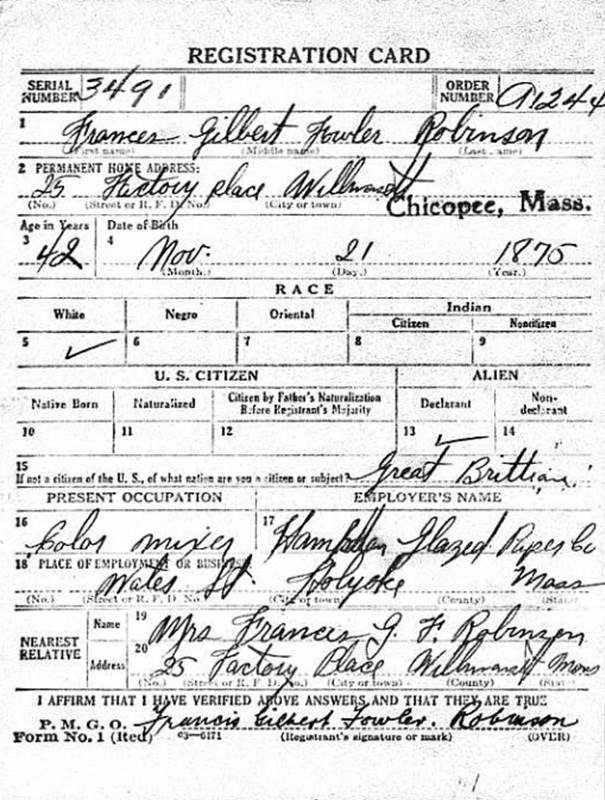 REGISTRATION CARD
SERIAL NUMBER 3491 ORDER NUMBER A1244
1 Frances Gilbert Fowler Robinson
(First name) (Middle name) (Last name)
2 PERMANENT HOME ADDRESS:
25 Factory place Chicopee, Mass.
(No.) (Street or R. F. D. No.) (City or town)
Age in Years Date of Birth
3 42 4 Nov. 21 1875
(Month.) (Day.) (Year.)
RACE
White Negro Oriental Indian
Citizen Noncitizen
5 ✓ 6 7 8 9
U. S. CITIZEN ALIEN
Native Born Naturalized Citizen by Father's Naturalization Before Registrant's Majority Declarant Non-declarant
10 11 12 13 ✓ 14
15 If not a citizen of the U. S., of what nation are you a citizen or subject? Great Brittian
PRESENT OCCUPATION EMPLOYER'S NAME
16 Color mixer 17 Hampden Glazed Paper Co
18 PLACE OF EMPLOYMENT OR BUSINESS:
Water St. Holyoke Mass
(No.) (Street or R. F. D. No.) (City or town) (County) (State)
NEAREST RELATIVE Name 19 Mrs Francis G. F. Robinson
Address 20 25 Factory Place Mass
(No.) (Street or R. F. D. No.) (City or town) (County) (State)
I AFFIRM THAT I HAVE VERIFIED ABOVE ANSWERS AND THAT THEY ARE TRUE
P. M. G. O. Francis Gilbert Fowler. Robinson
Form No. 1 (Red) 03—6171 (Registrant's signature or mark) (OVER)